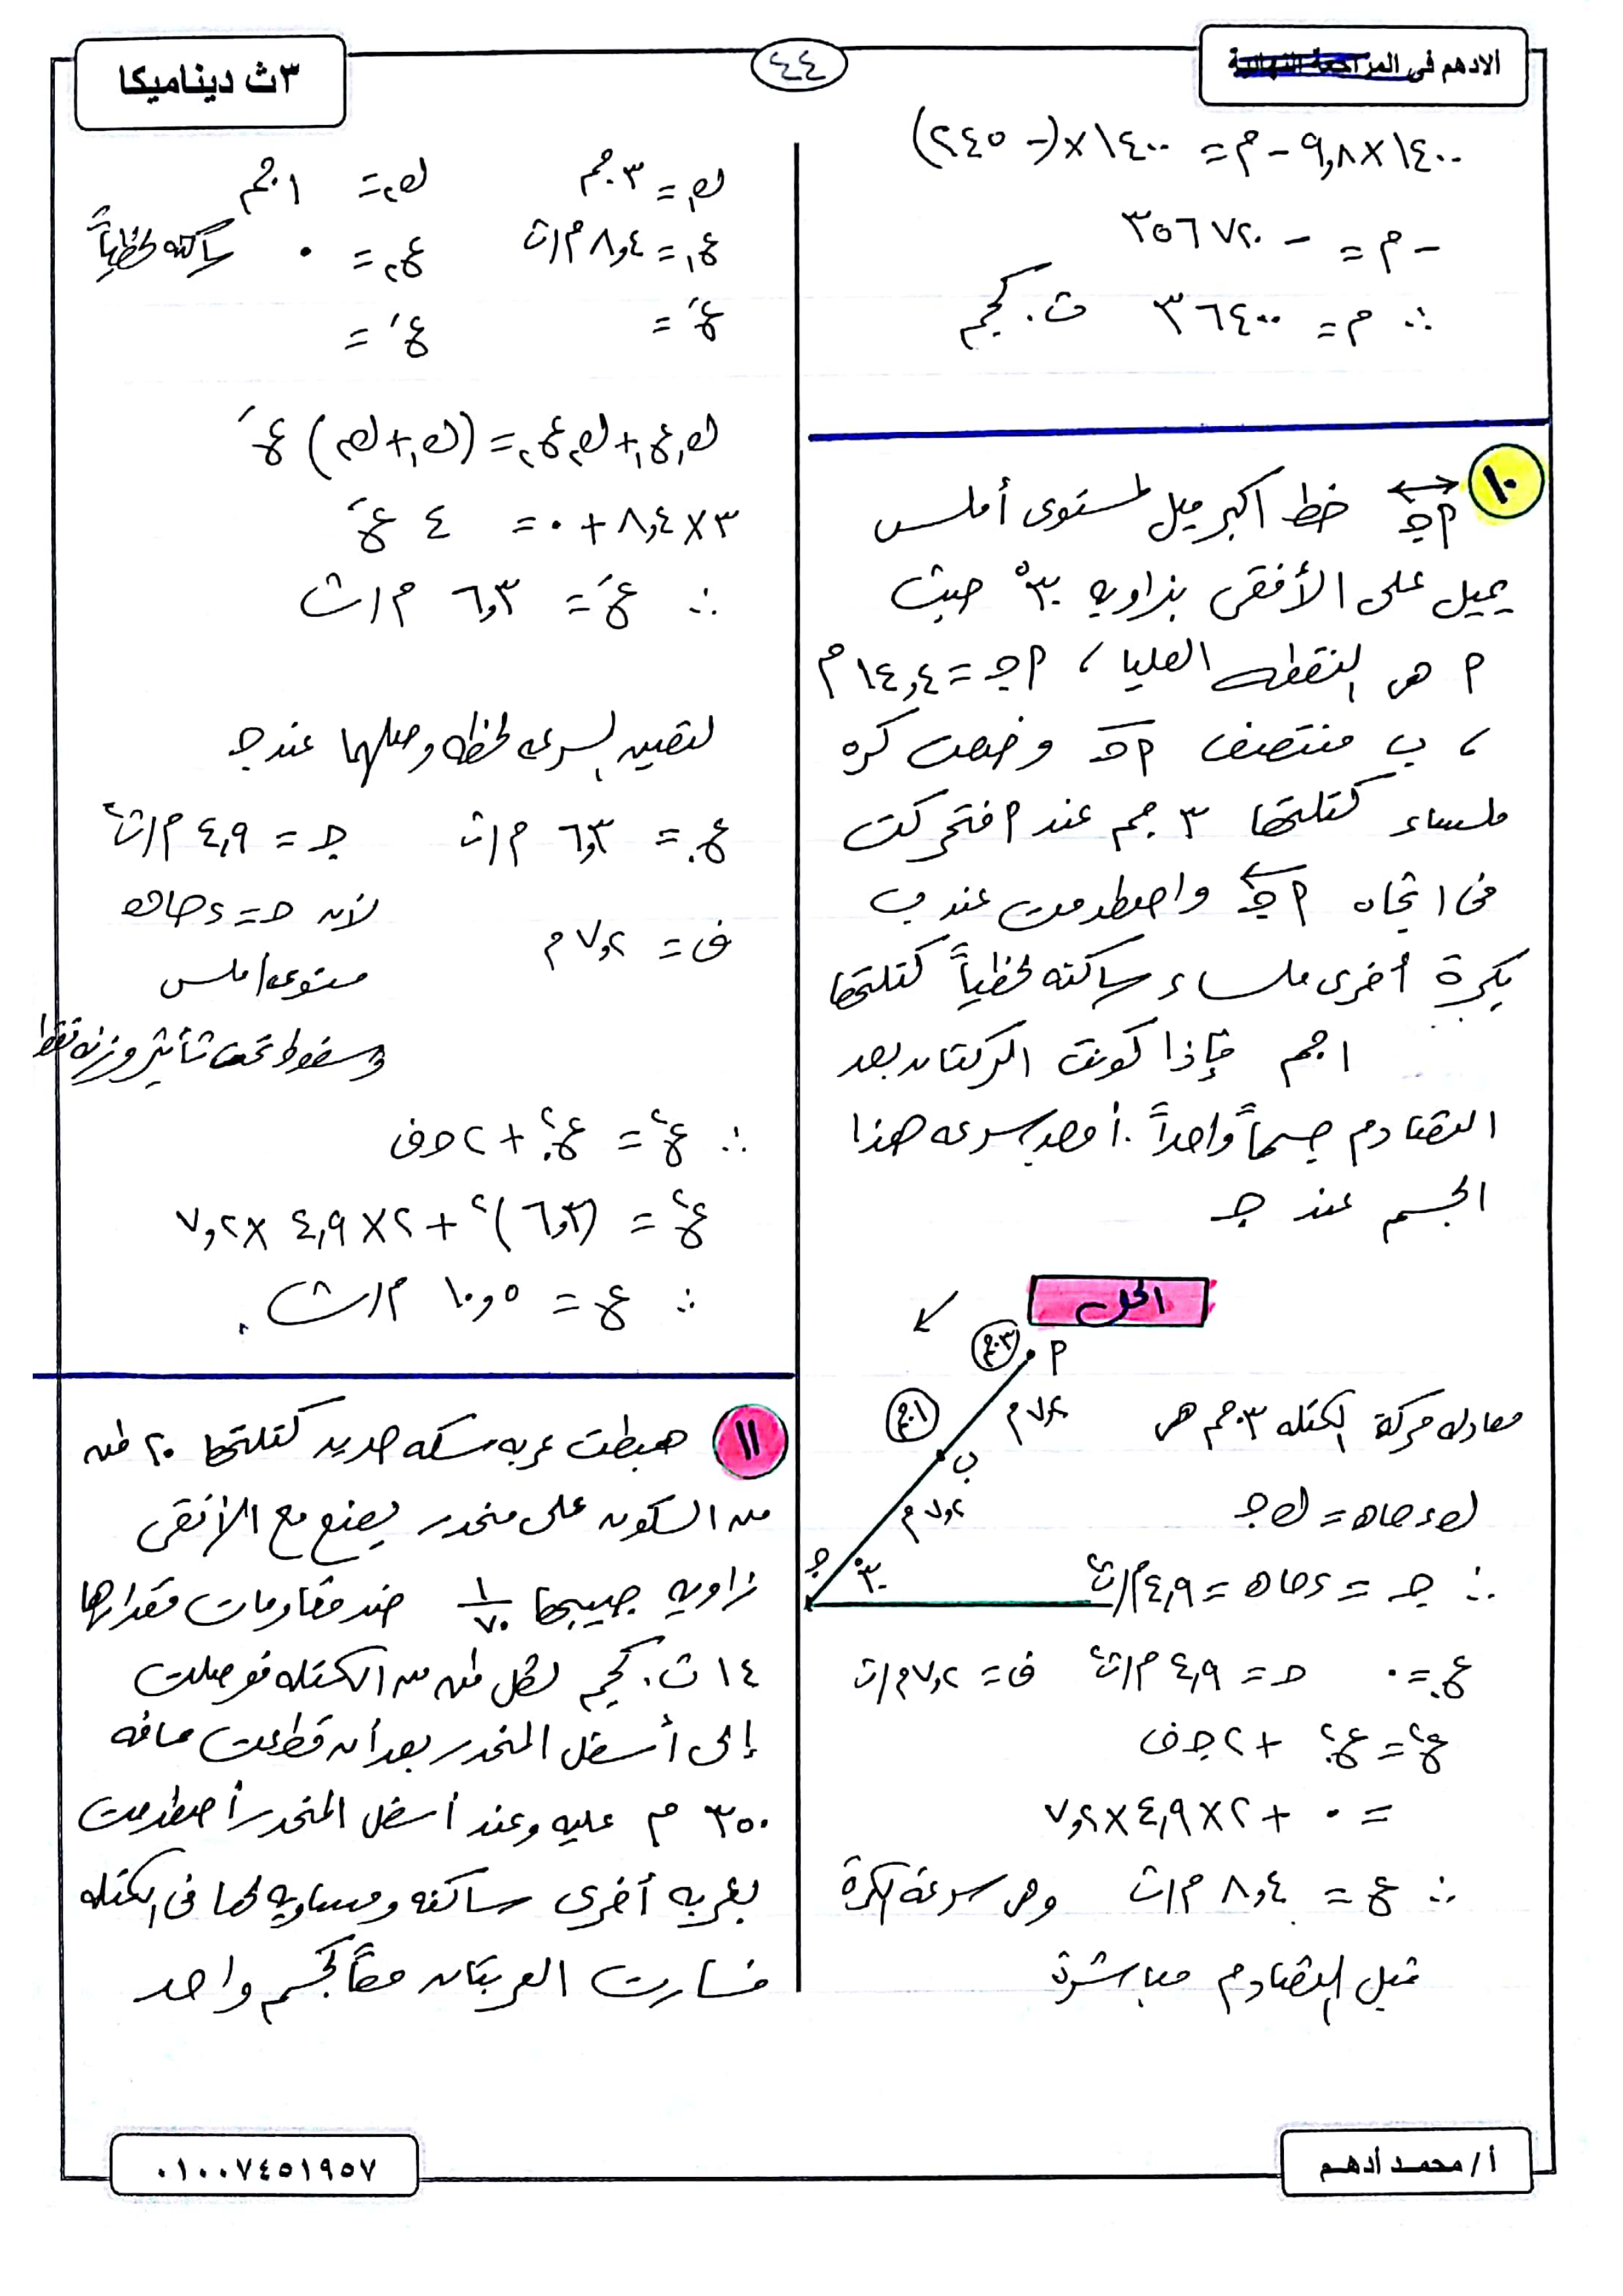 الادهم فى المراجعة النهائية
٤٤
٣ث ديناميكا
١٤٠٠ × ٩,٨ - م = ١٤٠٠ × (- ٢٤٥)
- م = - ٣٥٦٧٢٠
∴ م = ٣٦٤٠٠ ث. كجم
١٠ أجـ خط اكبر ميل لمستوى أملس
يميل على الأفقى بزاوية ٣٠° حيث
أ هى النقطه العليا ، أجـ = ١٤,٤ م
، ب منتصف أجـ وضعت كره
ملساء كتلتها ٣ جم عند أ فتحركت
فى اتجاه أجـ واصطدمت عند ب
بكرة أخرى ملساء ساكنه لحظياً كتلتها
١ جم فإذا كونت الكرتان بعد
التصادم جسماً واحداً . أوجد سرعه هذا
الجسم عند جـ
الحل
٣جم
أ
٧,٢ م
١جم
ب
٧,٢ م
جـ
٣٠°
معادله حركة الكتله ٣ جم هى
ك ء حاهـ = ك جـ
∴ جـ = ء حاهـ = ٤,٩ م/ث٢
ع. = ٠ حـ = ٤,٩ م/ث٢ ف = ٧,٢ م/ث
ع٢ = ع.٢ + ٢ جـ ف
= ٠ + ٢ × ٤,٩ × ٧,٢
∴ ع = ٨,٤ م/ث وهى سرعة الكرة
قبل التصادم مباشرة
ك١ = ٣ جم ك٢ = ١ جم
ع١ = ٨,٤ م/ث ع٢ = ٠ ساكنه لحظياً
ع' = ع' =
ك١ع١ + ك٢ع٢ = (ك١ + ك٢) ع'
٣ × ٨,٤ + ٠ = ٤ ع'
∴ ع' = ٦,٣ م/ث
لتعيين السرعه لحظه وصولهما عند جـ
ع. = ٦,٣ م/ث جـ = ٤,٩ م/ث٢
ف = ٧,٢ م لأنه حـ = ء حاهـ
مستوى أملس
وسقوط تحت تأثير وزنه فقط
∴ ع٢ = ع.٢ + ٢ حـ ف
ع٢ = (٦,٣)٢ + ٢ × ٤,٩ × ٧,٢
∴ ع = ١٠,٥ م/ث
١١ هبطت عربه سكه حديد كتلتها ٢٠ طن
من السكون على منحدر يصنع مع الأفقى
زاويه جيبها ١/٧٠ ضد مقاومات مقدارها
١٤ ث. كجم لكل طن من الكتله فوصلت
إلى أسفل المنحدر بعد أن قطعت مسافه
٣٥٠ م عليه وعند أسفل المنحدر أصطدمت
بعربه أخرى ساكنه ومساويه لها فى الكتله
فسارت العربتان معاً كجسم واحد
أ/ محمد أدهم
٠١٠٠٧٤٥١٩٥٧